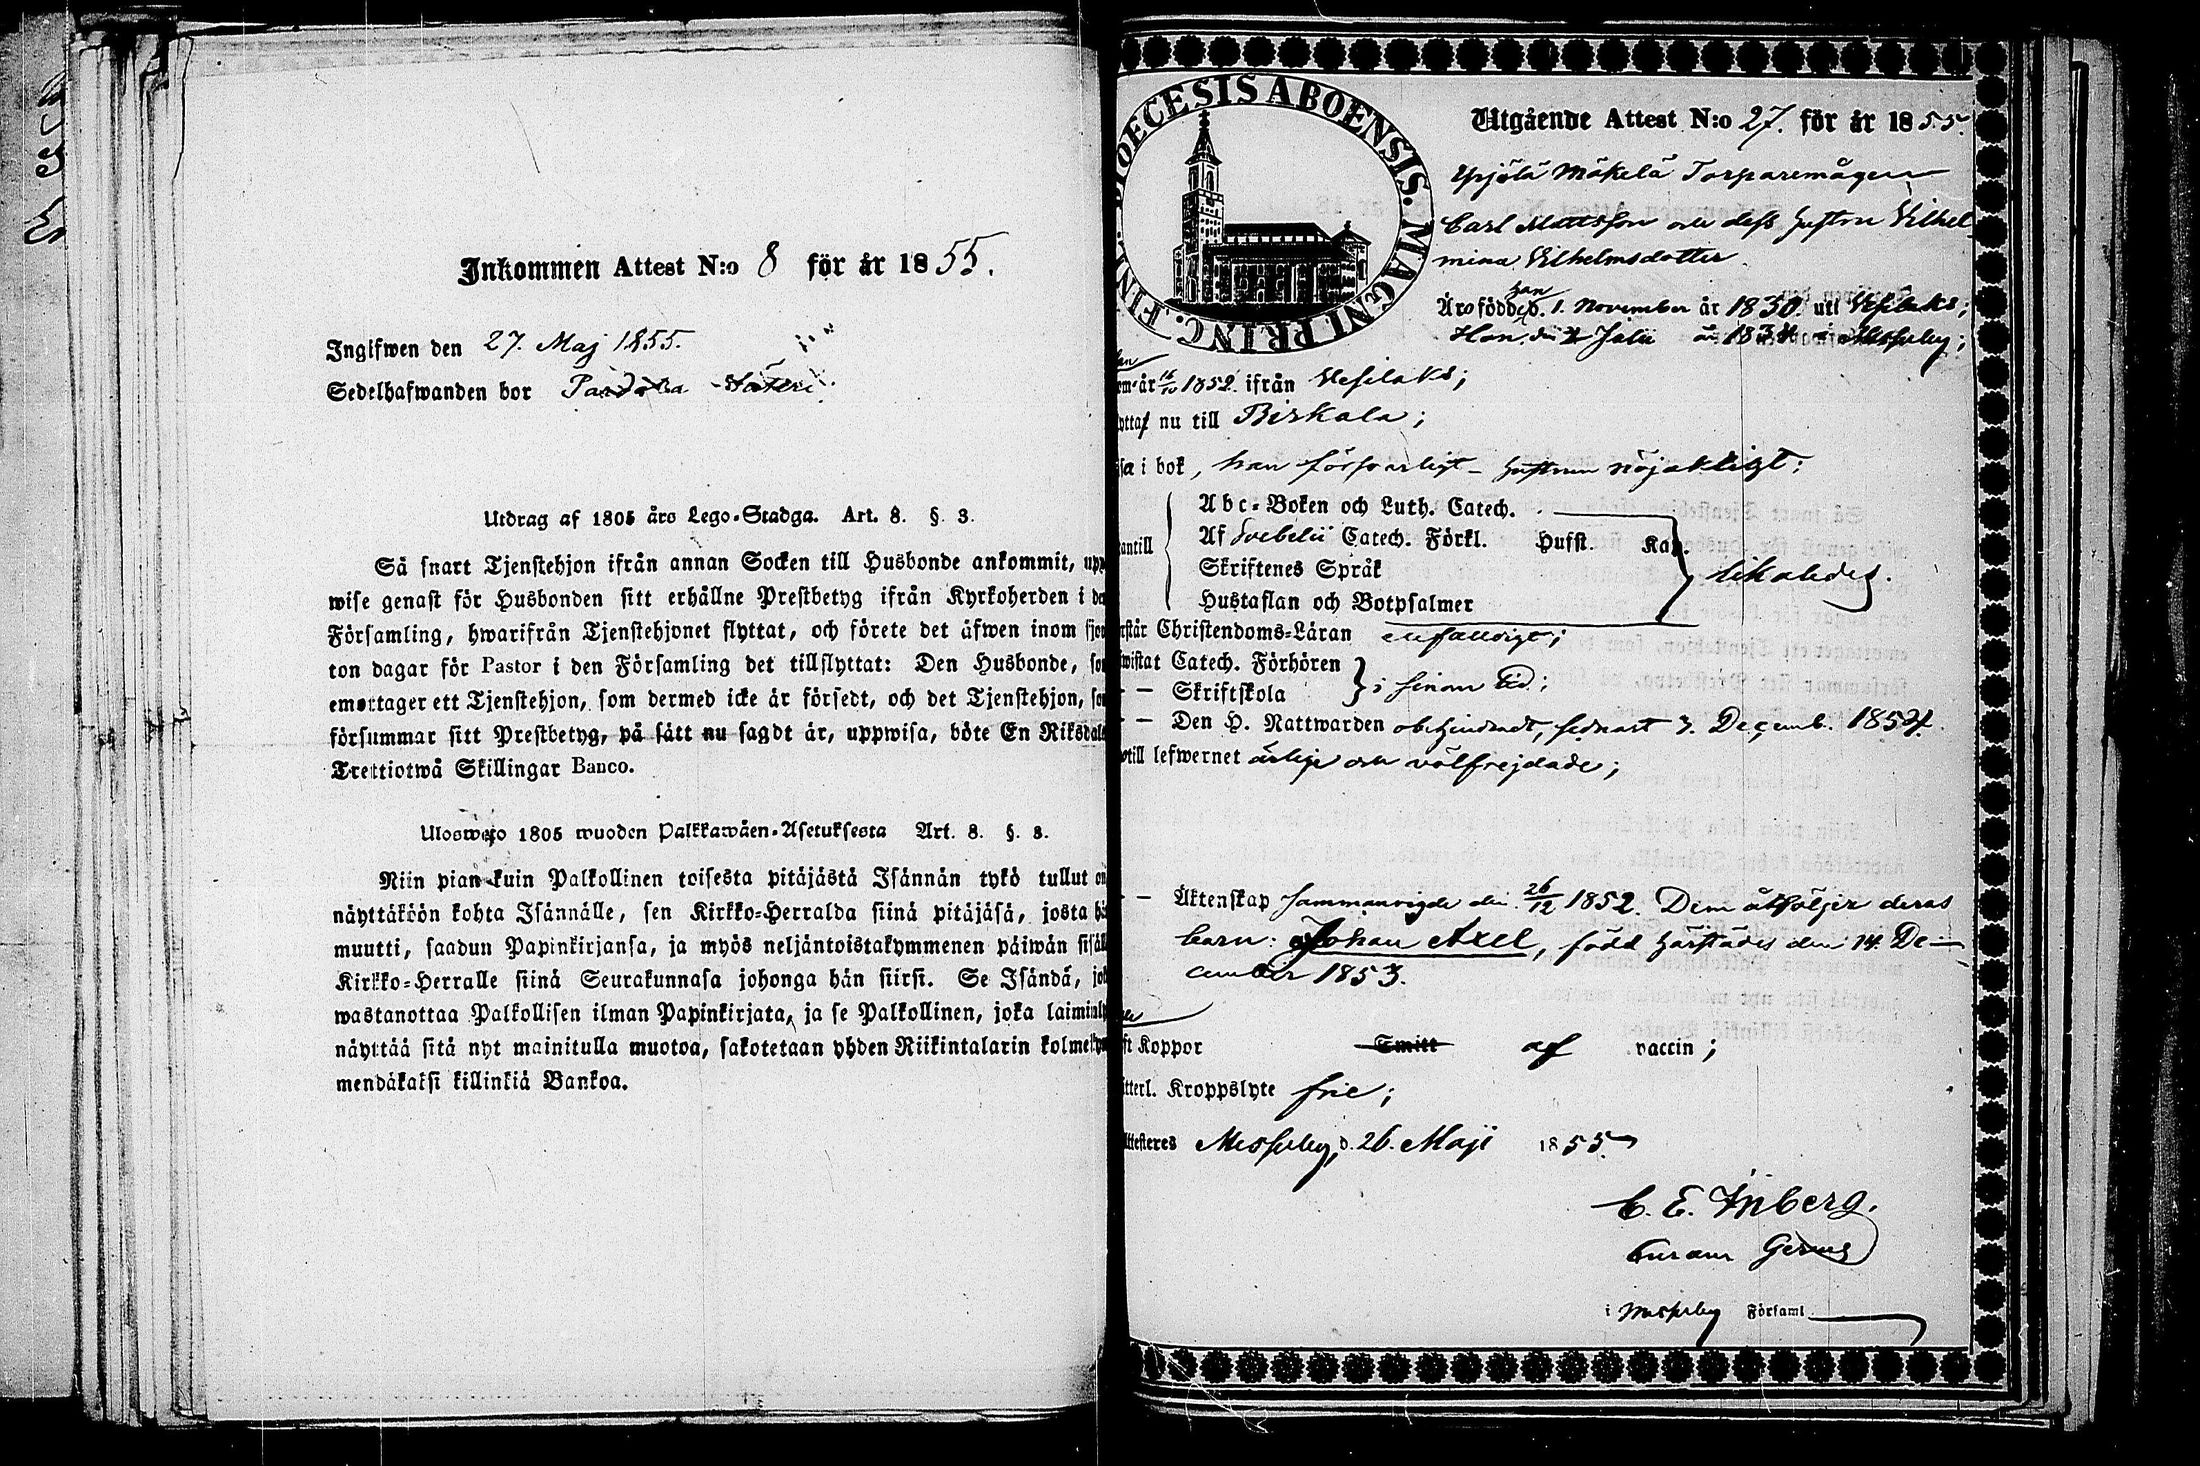 Inkommen Attest N:o 8 för år 1855.
Ingifwen den 27. Maj 1855.
Sedelhafwanden bor
Utdrag af 1805 års Lego-Stadga. Art. 8. §. 3.
Så snart Tjenstehjon ifrån annan Socken till Husbonde ankommit, upp
wise genast för Husbonden sitt erhållne Prestbetyg ifrån Kyrkoherden i de
Församling, hwarifrån Tjenstehjonet flyttat, och förete det äfwen inom fjor
ton dagar för Pastor i den Församling det tillflyttat: Den Husbonde, so
emottager ett Tjenstehjon, som dermed icke är försedt, och det Tjenstehjon, so
försummar sitt Prestbetyg, på sätt nu sagdt är, uppwisa, böte En Riksdale
Trettiotwå Skillingar Banco.
Ulosweto 1805 wuoden Palkkawäen-Asetuksesta Art. 8. §. 3.
Niin pian kuin Palkollinen toisesta pitäjästä Isännän tykö tullut on
näyttäköön kohta Isännälle, sen Kirkko-Herralda siinä pitäjäsä, josta hä
muutti, saadun Papinkirjansa, ja myös neljäntoistakymmenen päiwän sisäll
Kirkko-Herralle siinä Seurakunnasa johonga hän siirsi. Se Isändä, jok
wastanottaa Palkollisen ilman Papinkirjata, ja se Palkollinen, joka laiminly
näyttää sitä nyt mainitulla muotoa, sakotetaan yhden Riikintalarin kolmekym
mendäkaksi killinkiä Bankoa.
DIOECESIS ABOENSIS. MAGNI PRINC. FINL.
Utgående Attest N:o 27. för år 1855.
Yrjölä Mäkelä Torparemågen
Carl Mattsson och dess hustru Vilhel
mina Vilhelmsdotter
han
Äro födde d. 1. November år 1830. uti Vesilaks;
Hon den Julii år 1834 i Messuby;
em år 16/10 1852. ifrån Vesilaks;
yttaf nu till Birkala;
sa i bok, han försvarligt - hustrun nöjaktigt;
antill
Abc-Boken och Luth. Catech.
Af Svebelii Catech. Förkl. Hufst. Kap.
Skriftenes Språk
likaledes.
Hustaflan och Botpsalmer
rstår Christendoms-Läran enfaldigt;
wistat Catech. Förhören
- - Skriftskola
i sinom tid;
- - Den H. Nattwarden obehindradt, sednast 3. Decemb. 1854.
till lefwernet ärlige och välfrejdade;
- - Äktenskap sammanvigde den 26/12 1852. Dem åtföljer deras
barn: Johan Axel, född härstädes den 14. De-
cember 1853.
ft Koppor Smitt af vaccin;
tterl. Kroppslyte frie;
Attesteres Messuby, d. 26. Maji 1855.
C. E. Inberg.
Curam Gerens
i Messuby Församl